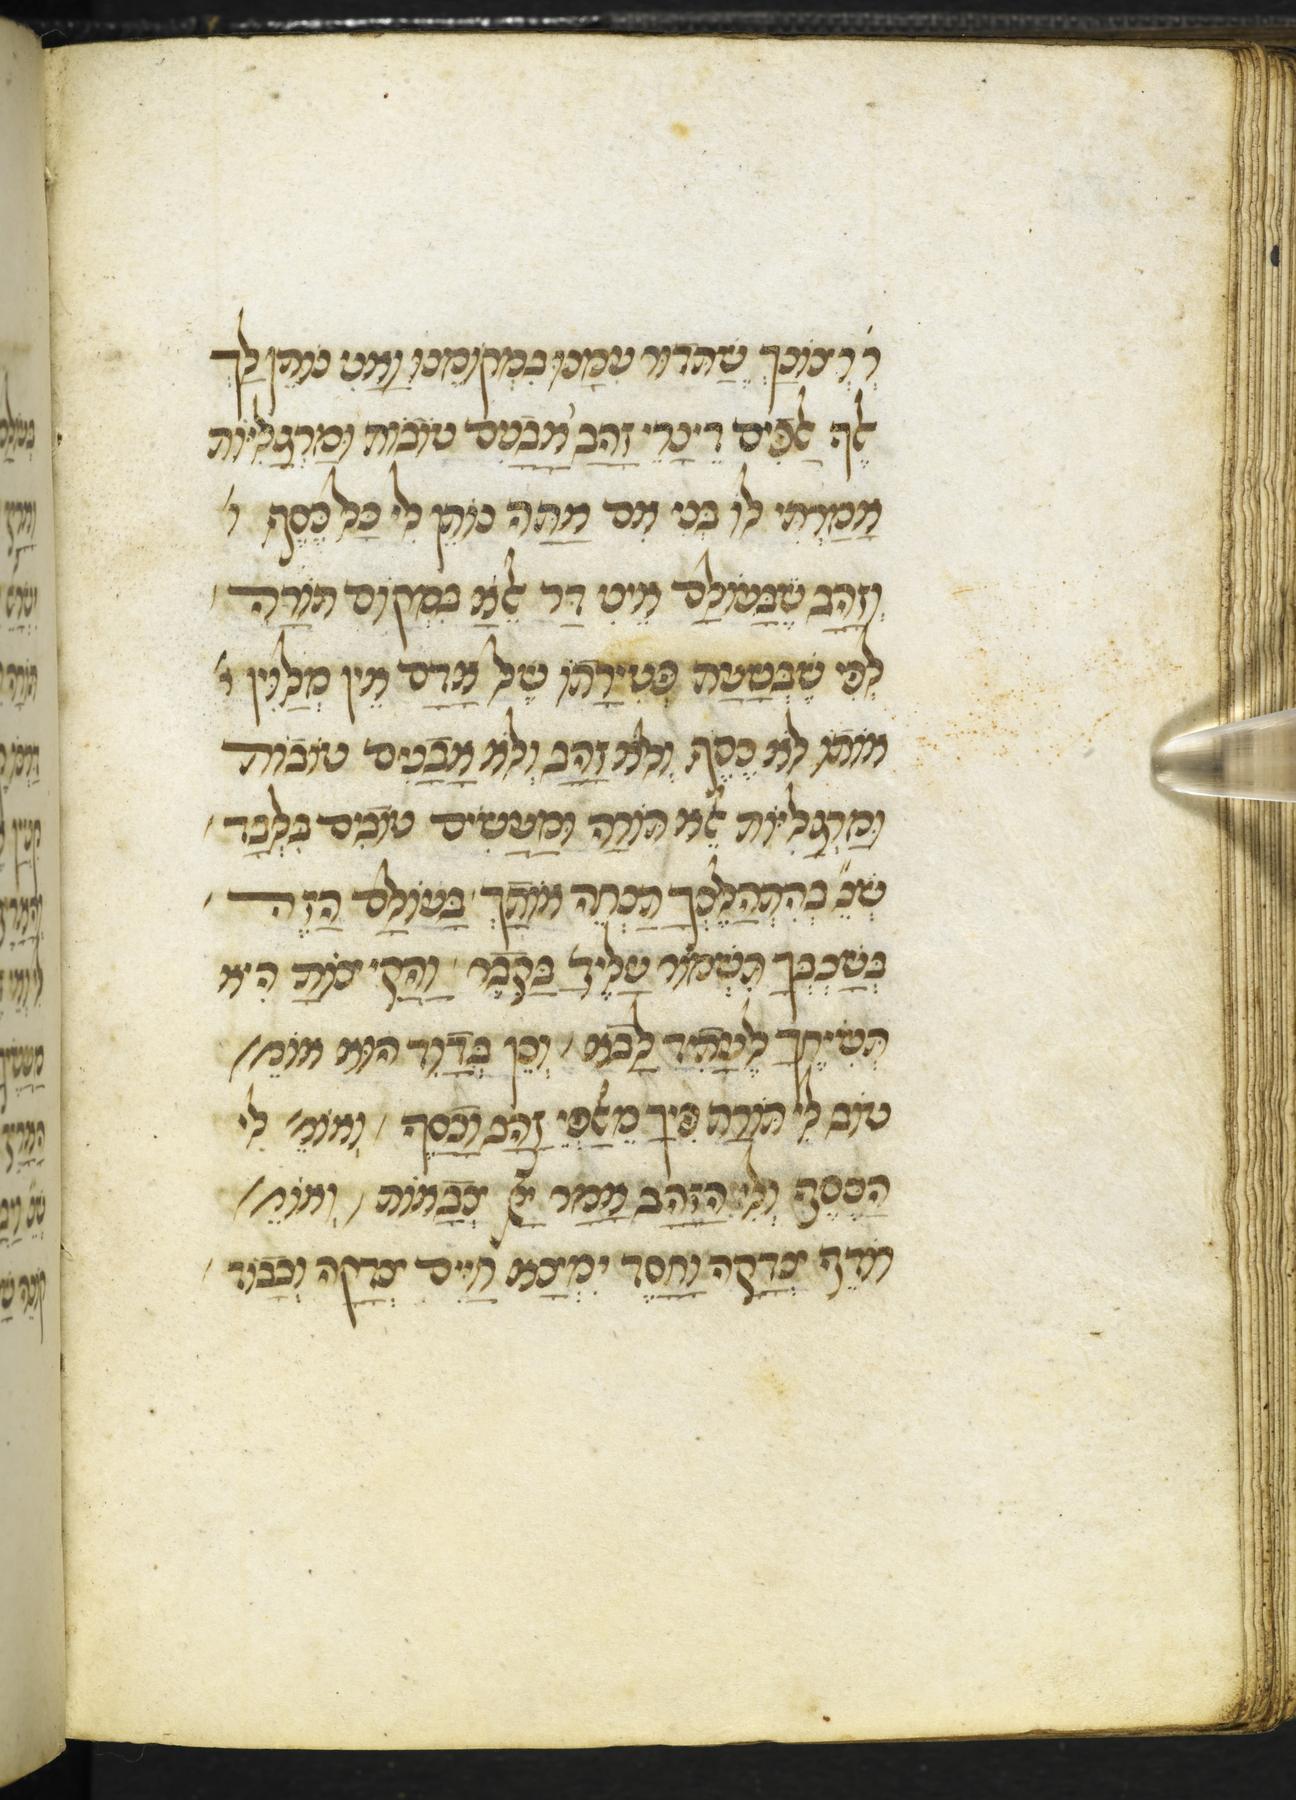 ר׳ רְצוֹנְךָ שֶׁתָּדוּר עִמָּנוּ בִּמְקוֹמֵנוּ וַאֲנִי נוֹתֵן לְךָ
אֶלֶף אַלְפִים דִּינְרֵי זָהָב אֲבָנִים טוֹבוֹת וּמַרְגָּלִיּוֹת
אָמַרְתִּי לוֹ בְּנִי אִם אַתָּה נוֹתֵן לִי כָּל כֶּסֶף ו׳
וְזָהָב שֶׁבָּעוֹלָם אֵינִי דָר אֶלָּא בִּמְקוֹם תּוֹרָה
לְפִי שֶׁבִּשְׁעַת פְּטִירָתוֹ שֶׁל אָדָם אֵין מְלַוִּין ו׳
אוֹתוֹ לֹא כֶסֶף וְלֹא זָהָב וְלֹא אֲבָנִים טוֹבוֹת
וּמַרְגָּלִיּוֹת אֶלָּא תּוֹרָה וּמַעֲשִׂים טוֹבִים בִּלְבָד
שֶׁנֶּ׳ בְּהִתְהַלֶּכְךָ תַּנְחֶה אוֹתָךְ בָּעוֹלָם הַזֶּה
בְּשָׁכְבְּךָ תִּשְׁמוֹר עָלֶיךָ בַּקֶּבֶר וַהֲקִיצוֹתָ הִיא
תְּשִׂיחֶךָ לֶעָתִיד לָבֹא / וְכֵן בְּדָוִד הוּא אוֹמֵ׳ /
טוֹב לִי תּוֹרַת פִּיךָ מֵאַלְפֵי זָהָב וָכֶסֶף / וְאוֹמֵ׳ לִי
הַכֶּסֶף וְלִי הַזָּהָב אָמַר יְיָ צְבָאוֹת / וְאוֹמֵ׳ /
רוֹדֵף צְדָקָה וָחָסֶד יִמְצָא חַיִּים צְדָקָה וְכָבוֹד